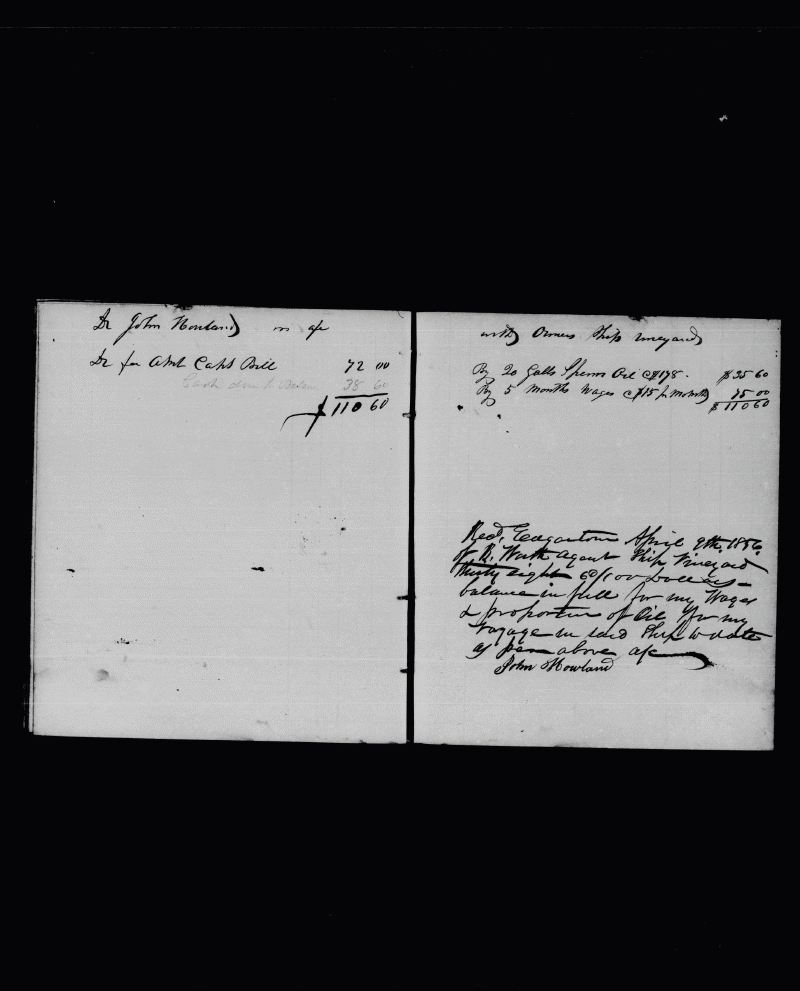 Dr John Howland in a/c
Dr for Amt Capts Bill 72 00
Cash due to Balance 38 60
$110 60
with Owners Ship Vineyard
By 20 Galls Sperm Oil @ $178. $35 60
By 5 Months Wages @ $15 pr Month 75 00
$110 60
Recd, Edgartown April 9th. 1856
of B. Worth Agent Ship Vineyard
thirty eight 60/100 Dollars
balance in full for my Wages
& proportion of Oil for my
voyage in said Ship to date
as per above a/c
John Howland